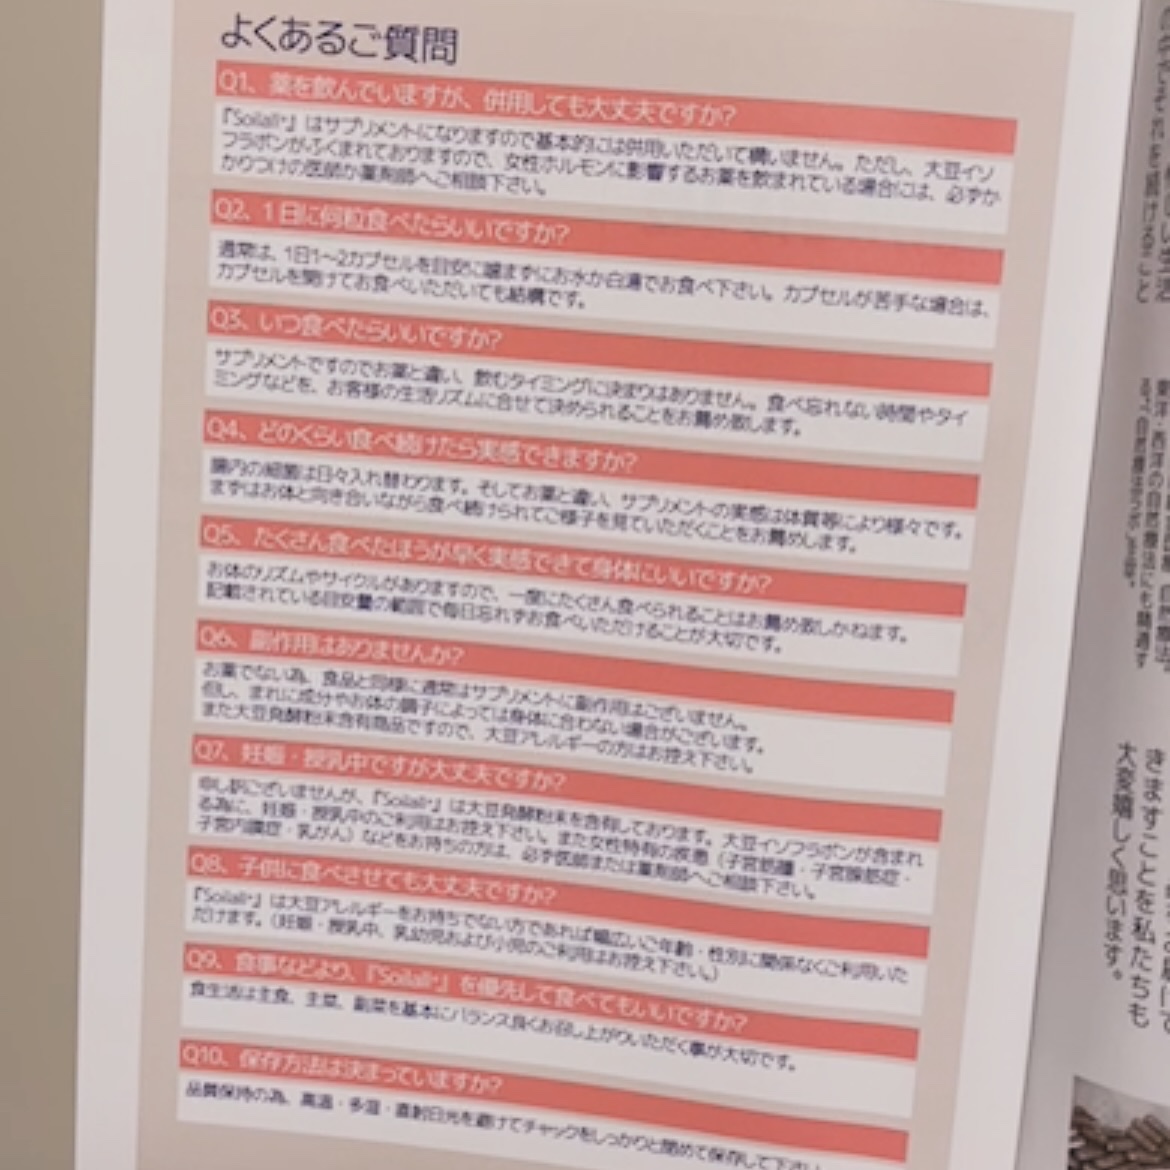 よくあるご質問
Q1、薬を飲んでいますが、併用しても大丈夫ですか?
はサプリメントになりますので基本的には併用いただいて構いません。ただし、大豆イソ
フラボンがふくまれておりますので、女性ホルモンに影響するお薬を飲まれている場合には、必ずか
かりつけの医師か薬剤師へご相談下さい。
Q2、1日に何粒食べたらいいですか?
通常は、1日1〜2カプセルを目安に噛まずにお水か白湯でお食べ下さい。カプセルが苦手な場合は、
カプセルを開けてお食べいただいても結構です。
Q3、いつ食べたらいいですか?
サプリメントですのでお薬と違い、飲むタイミングに決まりはありません。食べ忘れない時間やタイ
ミングなどを、お客様の生活リズムに合せて決められることをお薦め致します。
Q4、どのくらい食べ続けたら実感できますか?
腸内の細菌は日々入れ替わります。そしてお薬と違い、サプリメントの実感は体質等により様々です。
まずはお体と向き合いながら食べ続けられてご様子を見ていただくことをお薦めします。
Q5、たくさん食べたほうが早く実感できて身体にいいですか?
お体のリズムやサイクルがありますので、一度にたくさん食べられることはお薦め致しかねます。
記載されている目安量の範囲で毎日忘れずお食べいただけることが大切です。
Q6、副作用はありませんか?
お薬でない為、食品と同様に通常はサプリメントに副作用はございません。
但し、まれに成分やお体の調子によっては身体に合わない場合がございます。
また大豆発酵粉末含有商品ですので、大豆アレルギーの方はお控え下さい。
Q7、妊娠・授乳中ですが大丈夫ですか?
申し訳ございませんが、は大豆発酵粉末を含有しております。大豆イソフラボンが含まれ
る為に、妊娠・授乳中のご利用はお控え下さい。また女性特有の疾患（子宮筋腫・子宮腺筋症・
子宮内膜症・乳がん）などをお持ちの方は、必ず医師または薬剤師へご相談下さい。
Q8、子供に食べさせても大丈夫ですか?
は大豆アレルギーをお持ちでない方であれば幅広いご年齢・性別に関係なくご利用いた
だけます。（妊娠・授乳中、乳幼児および小児のご利用はお控え下さい。）
Q9、食事などより、を優先して食べてもいいですか?
食生活は主食、主菜、副菜を基本にバランス良くお召し上がりいただく事が大切です。
Q10、保存方法は決まっていますか?
品質保持の為、高温・多湿・直射日光を避けてチャックをしっかりと閉めて保存して下さい
きますことを私たちも
大変嬉しく思います。